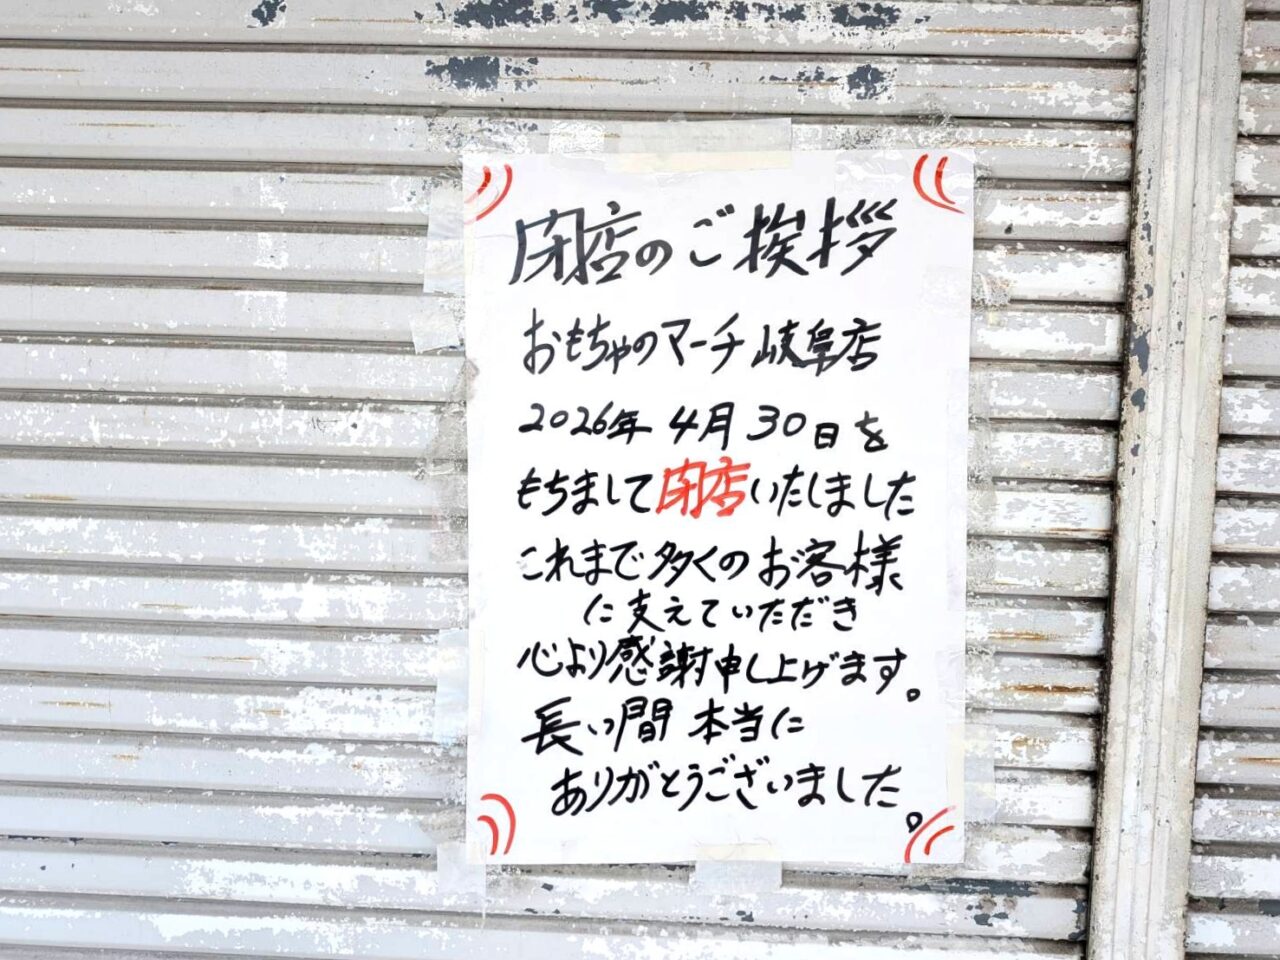 閉店のご挨拶
おもちゃのマーチ岐阜店
2026年4月30日を
もちまして閉店いたしました
これまで多くのお客様
に支えていただき
心より感謝申し上げます。
長い間本当に
ありがとうございました。